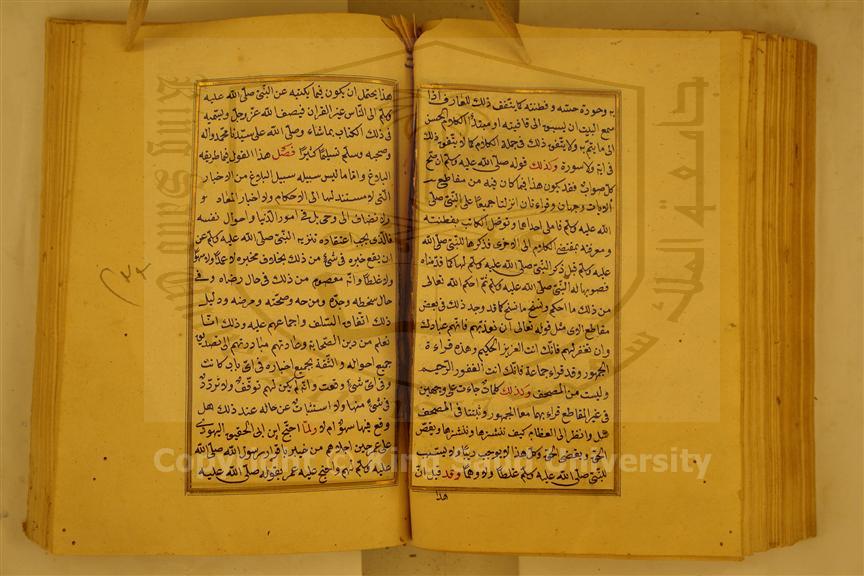 به وجودة حسه وفطنته كما يتفق ذلك للعارف اذا
سمع البيت ان يسبق الى قافيته او مبتدأ الكلام الحسن
الى ما يتم به ولا يتفق ذلك في جملة الكلام كما لا يتفق ذلك
في اية ولا سورة وكذلك قوله صلى الله عليه وسلم ان صح
كل صواب فقد يكون هذا فيما كان فيه من مقاطع
الايات وجهان وقراءتان انزلتا جميعا على النبي صلى
الله عليه وسلم فاملى احداهما وتوصل الكاتب بفطنته
ومعرفته بمقتضى الكلام الى الاخرى فذكرها للنبي صلى الله
عليه وسلم قبل ذكر النبي صلى الله عليه وسلم لها كما قدمناه
فصوبها له النبي صلى الله عليه وسلم ثم احكم الله تعالى
من ذلك ما احكم ونسخ ما نسخ كما قد وجد ذلك في بعض
مقاطع الاي مثل قوله تعالى ان تعذبهم فانهم عبادك
وان تغفر لهم فانك انت العزيز الحكيم وهذه قراءة
الجمهور وقد قراء جماعة فانك انت الغفور الرحيم
وليست من المصحف وكذلك كلمات جاءت على وجهين
في غير المقاطع قراء بهما معا الجمهور وثبتتا في المصحف
مثل وانظر الى العظام كيف ننشرها وننشزها ويقض
الحق ويقص الحق وكل هذا لا يوجب ريبا ولا يسبب
للنبي صلى الله عليه وسلم غلطا ولا وهما وقد قيل ان
هذا
هذا يحتمل ان يكون فيما يكتبه عن النبي صلى الله عليه
وسلم الى الناس غير القران فيصف الله عز وجل ويسميه
في ذلك الكتاب بما شاء وصلى الله على سيدنا محمد واله
وصحبه وسلم تسليما كثيرا فصل هذا القول فيما طريقه
البلاغ واما ما ليس سبيله سبيل البلاغ من الاخبار
التي لا مستند لها الى الاحكام ولا اخبار المعاد
ولا تضاف الى وحي بل في امور الدنيا واحوال نفسه
فالذي يجب اعتقاده تنزيه النبي صلى الله عليه وسلم عن
ان يقع خبره في شئ من ذلك بخلاف مخبره لا عمدا ولا سهوا
ولا غلطا وانه معصوم من ذلك في حال رضاه وفي
حال سخطه وجده ومزحه وصحته ومرضه ودليل
ذلك اتفاق السلف واجماعهم عليه وذلك انا
نعلم من دين الصحابة وعادتهم مبادرتهم الى تصديق
جميع احواله والثقة بجميع اخباره في اي باب كانت
وفي اي شئ وقعت وانه لم يكن لهم توقف ولا تردد
في شئ منها ولا استثبات عن حاله عند ذلك هل
وقع فيها سهو ام لا ولما احتج ابن ابي الحقيق اليهودي
على عمر حين اجلاهم من خيبر باقرار رسول الله صلى الله
عليه وسلم لهم واحتج عليه عمر بقوله صلى الله عليه
King Saud University
جامعة الملك سعود
Copyright © King Saud University